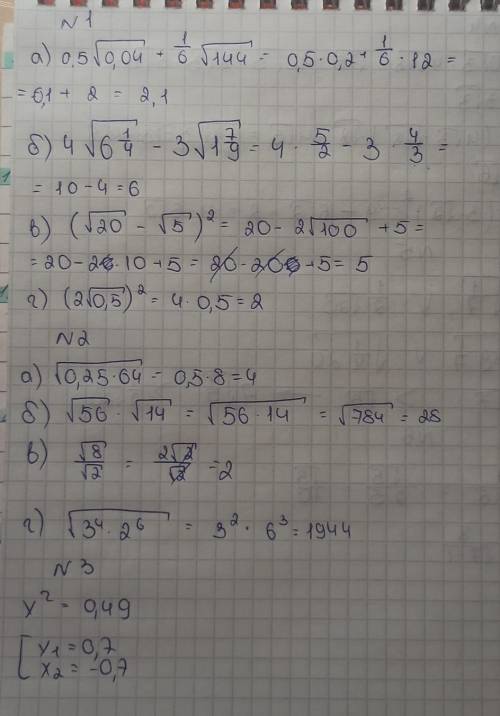 N1
а) 0,5√0,04 + 1/6 √144 = 0,5·0,2 + 1/6 · 12 =
= 0,1 + 2 = 2,1
б) 4√6 1/4 - 3√1 7/9 = 4 · 5/2 - 3 · 4/3 =
= 10 - 4 = 6
в) (√20 - √5)² = 20 - 2√100 + 5 =
= 20 - 2·10 + 5 = 20 - 20 + 5 = 5
г) (2√0,5)² = 4 · 0,5 = 2
N2
а) √0,25·64 = 0,5·8 = 4
б) √56 · √14 = √56 · 14 = √784 = 28
в) √8/√2 = 2√2/√2 = 2
г) √3⁴ · 2⁶ = 3² · 6³ = 1944
N3
x² = 0,49
[ x1 = 0,7
x2 = -0,7